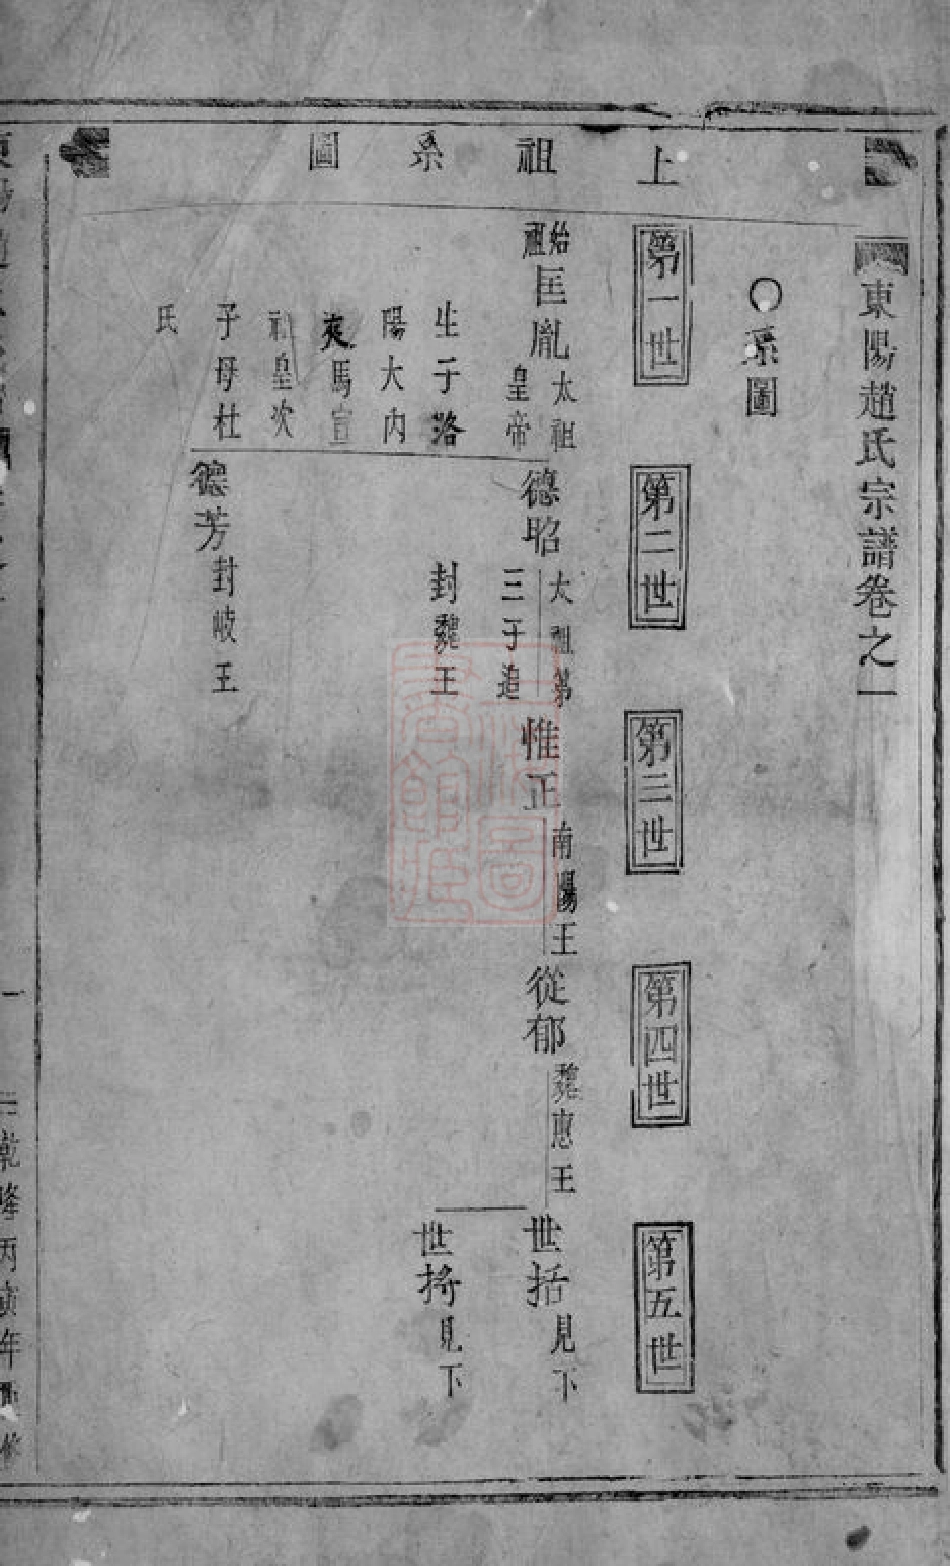 東陽趙氏宗譜卷之一
〇系圖
上祖系圖
第一世
第二世
第三世
第四世
第五世
始祖匡胤太祖皇帝
生于洛
陽大內
夾馬
祖皇次
子母杜
氏
德昭太祖第
三子追
封魏王
德芳封岐王
惟正南陽王
從郁魏惠王
世括見下
世將見下
一
乾隆丙寅年重修